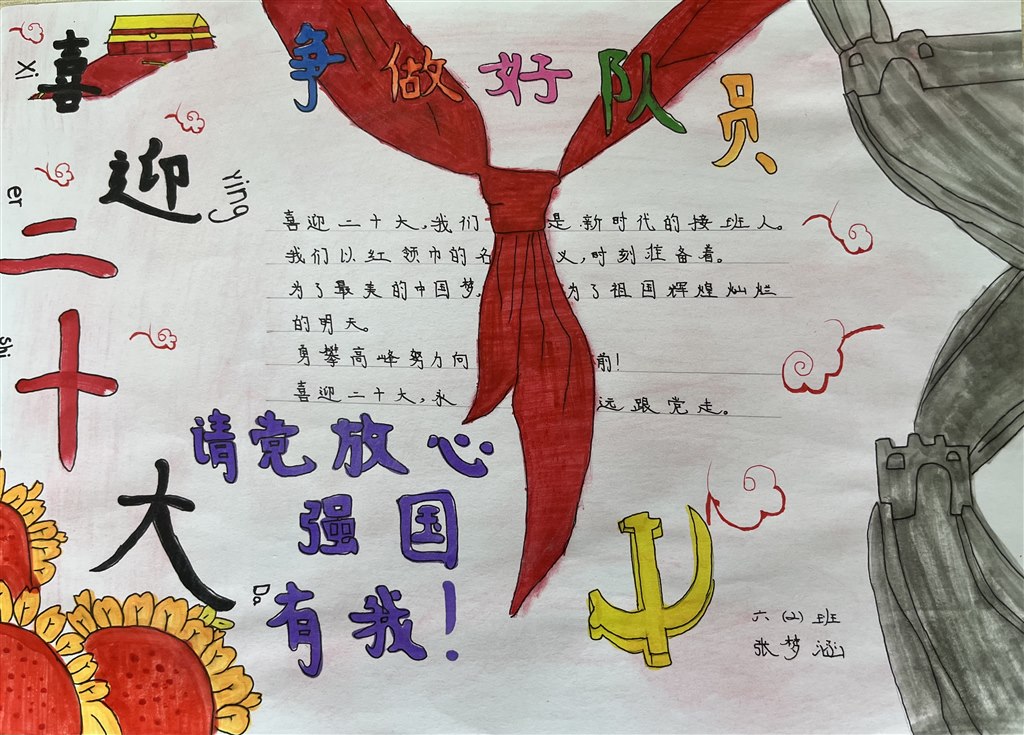 争做好队员
喜迎二十大
Xi
ying
er
shi
Da
喜迎二十大,我们是新时代的接班人。
我们以红领巾的名义,时刻准备着。
为了最美的中国梦,为了祖国辉煌灿烂
的明天。
勇攀高峰努力向前!
喜迎二十大,永远跟党走。
请党放心
强国
有我!
六(2)班
张梦涵